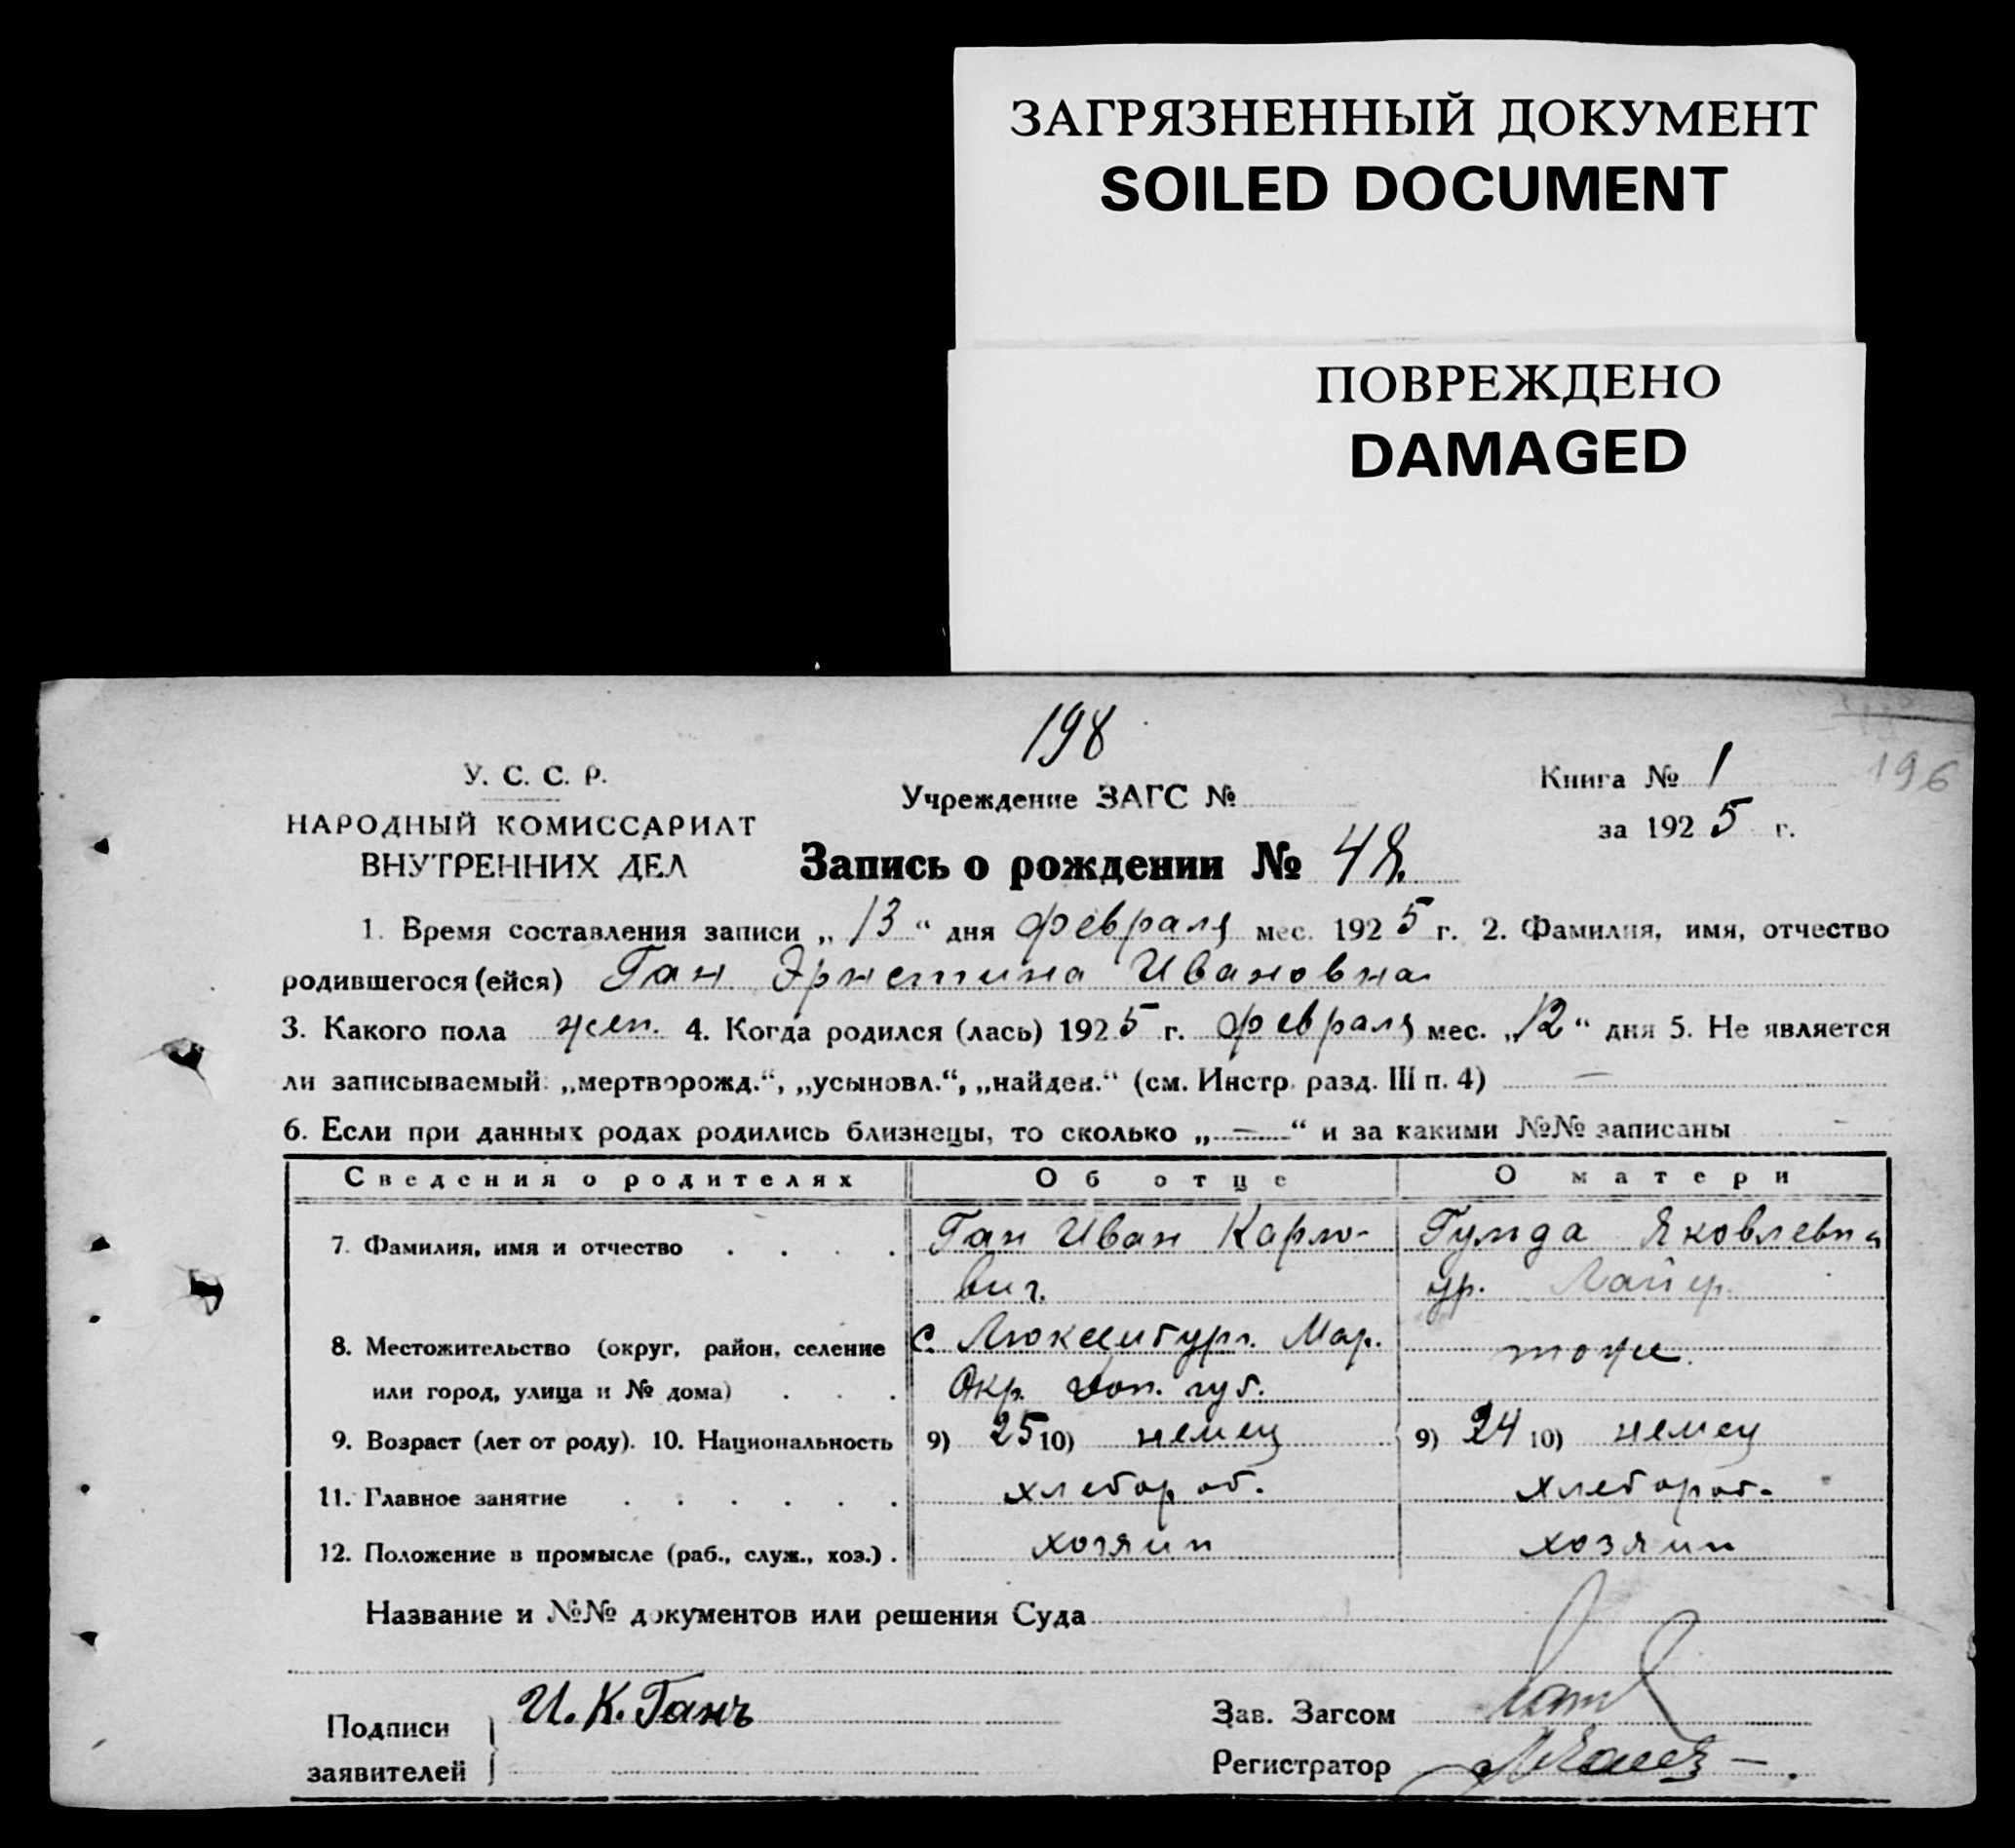 ЗАГРЯЗНЕННЫЙ ДОКУМЕНТ
SOILED DOCUMENT
ПОВРЕЖДЕНО
DAMAGED
198
196
У. С. С. Р.
НАРОДНЫЙ КОМИССАРИАТ
ВНУТРЕННИХ ДЕЛ
Учреждение ЗАГС №
Книга № 1
за 1925 г.
Запись о рождении № 48.
1. Время составления записи „13“ дня февраля мес. 1925 г. 2. Фамилия, имя, отчество
родившегося (ейся) Ган Эрнестина Ивановна
3. Какого пола жен. 4. Когда родился (лась) 1925 г. февраля мес. „12“ дня 5. Не является
ли записываемый: „мертворожд.“, „усыновл.“, „найден.“ (см. Инстр. разд. III п. 4) —
6. Если при данных родах родились близнецы, то сколько „—“ и за какими №№ записаны —
Сведения о родителях Об отце О матери
7. Фамилия, имя и отчество . . . . Ган Иван Карло- Гулда Яковлевна
вич. ур.
8. Местожительство (округ, район, селение с. Люксембург. Мар. тоже.
или город, улица и № дома) . . . Окр. Дон. губ.
9. Возраст (лет от роду). 10. Национальность 9) 25 10) немец 9) 24 10) немец
11. Главное занятие . . . . . . хлебороб. хлебороб.
12. Положение в промысле (раб., служ., хоз.) . хозяин хозяин
Название и №№ документов или решения Суда
Подписи
заявителей
И. К. Ганъ
Зав. Загсом
Регистратор